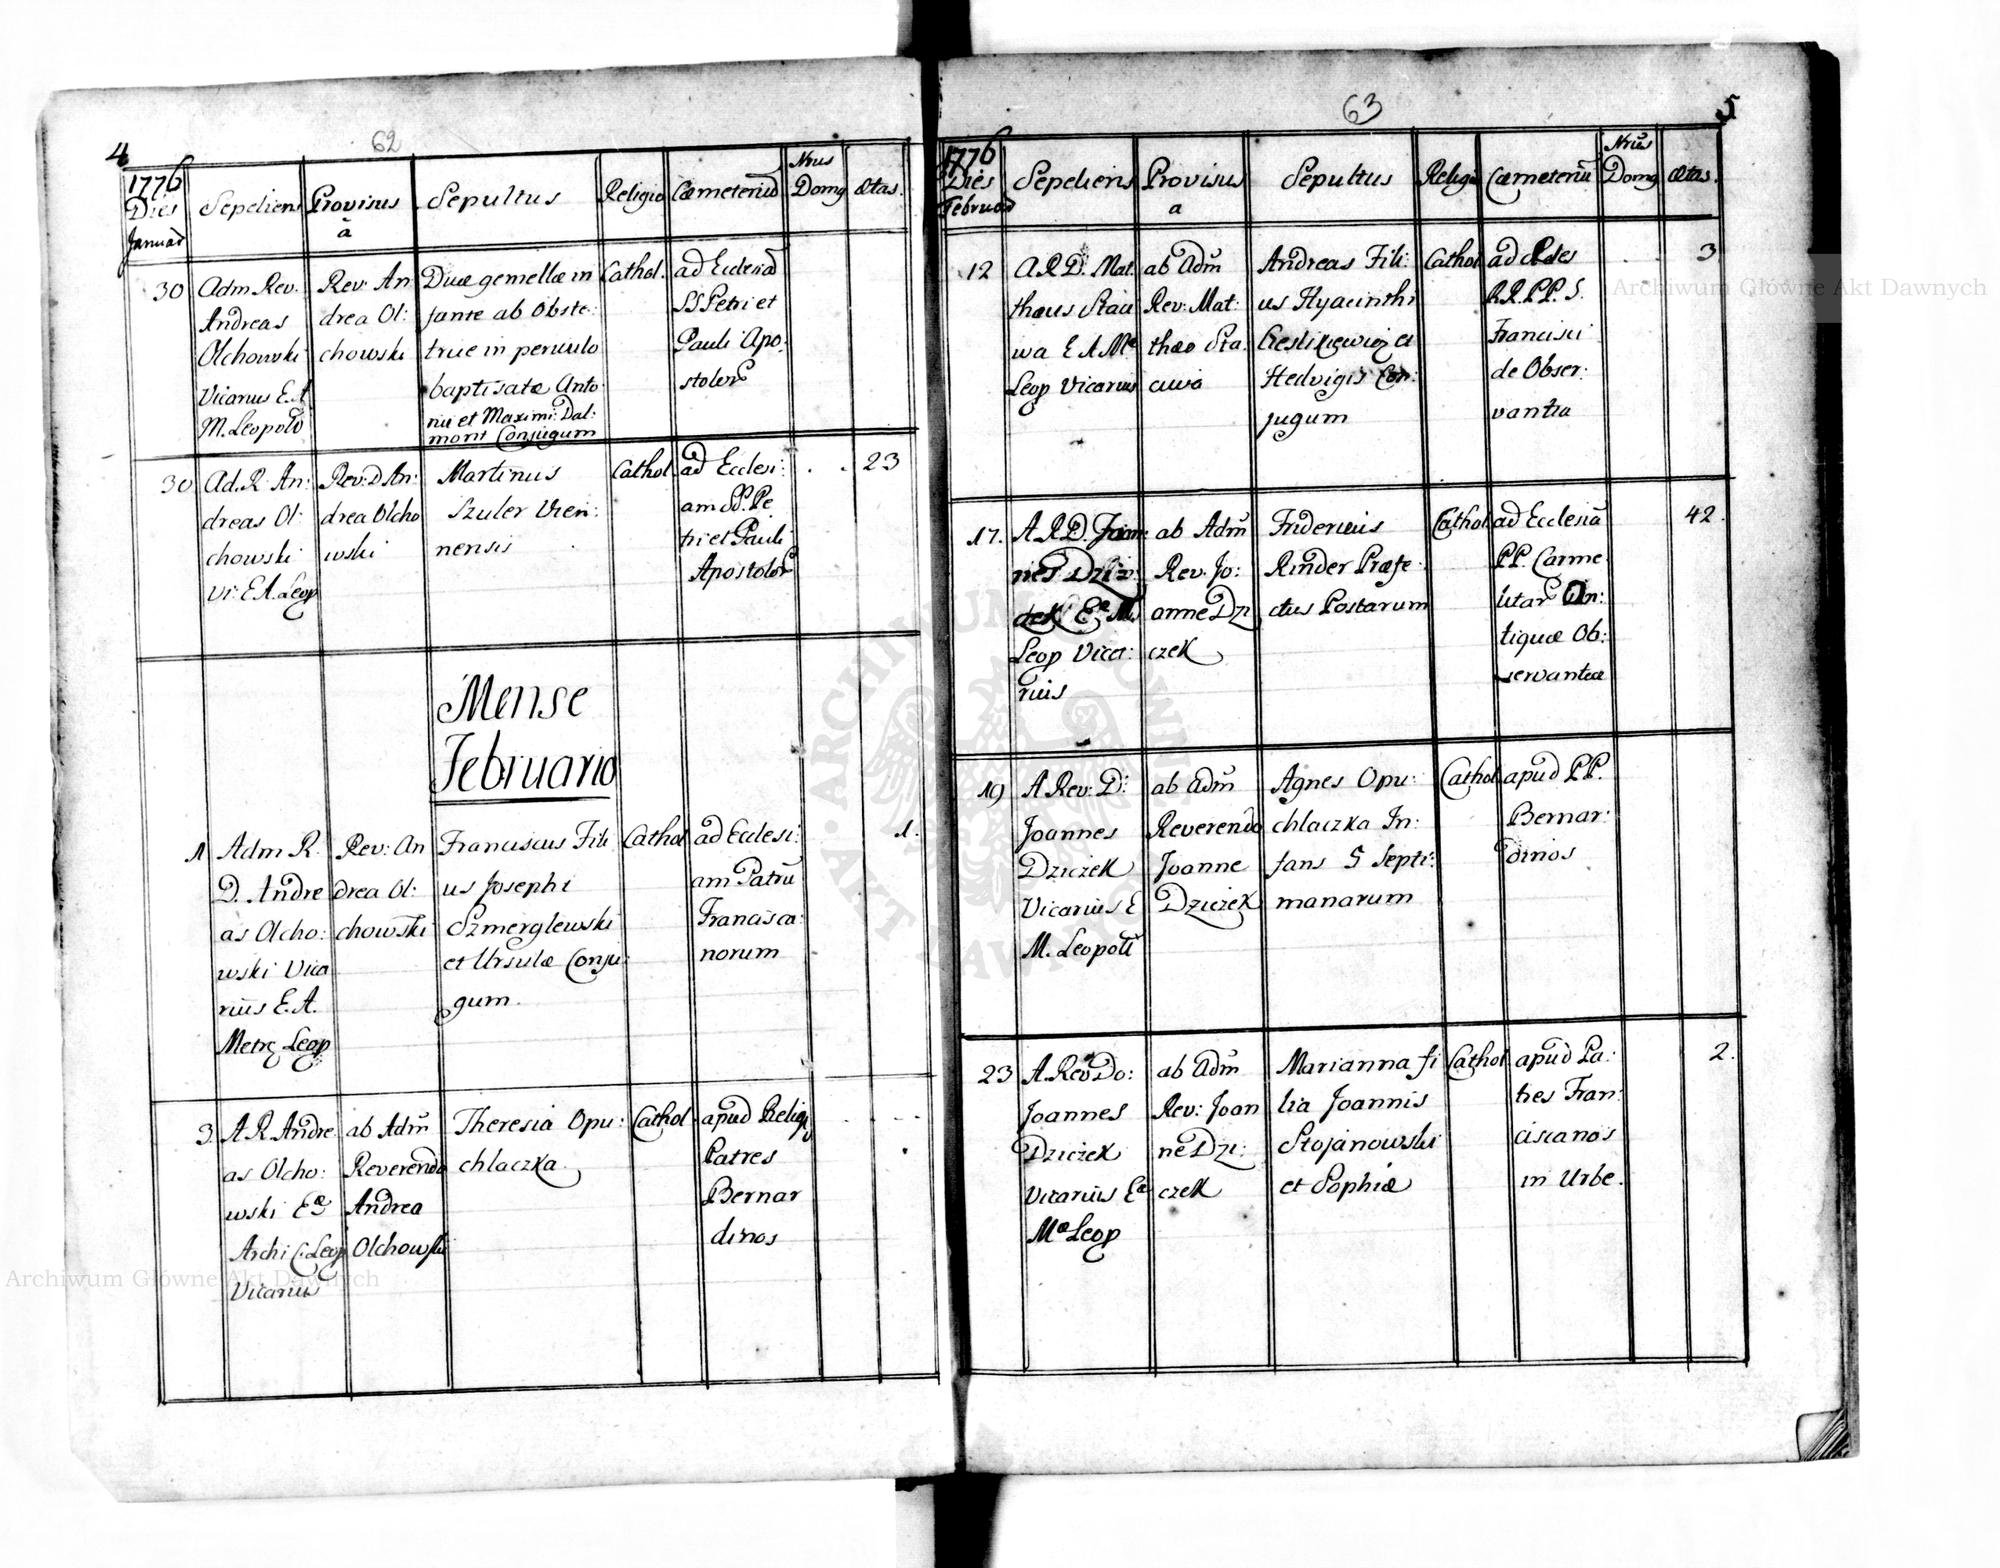 4
62
1776
Dies
Januar
Sepeliens
Provisus
à
Sepultus
Religio
Cœmeteriū
Nrus
Domq
Ætas.
30
Adm Rev.
Andreas
Olchowski
Vicarius E.A
M. Leopold
Rev: An
drea Ol:
chowski
Duæ gemellæ in
fante ab Obste:
trice in periculo
baptisatæ Anto
nii et Maximi: Dal:
mont Conjugum
Cathol.
ad Ecclesiā
SS Petri et
Pauli Apo:
stolor
30
Ad. R An:
dreas Ol:
chowski
Vi: E A. Leop
Rev: D An:
drea Olcho
wski
Martinus
Szuler Vien:
nensis
Cathol.
ad Ecclesi:
am SS. Pe
tri et Pauli
Apostolor
. . 23
Mense
Februario
1
Adm R.
D. Andre
as Olcho:
wski Vica
rius E. A.
Metrc Leop
Rev: An
drea Ol:
chowski
Franciscus Fili
us Josephi
Szmerglewski
et Ursulæ Conju:
gum.
Cathol
ad Ecclesi:
am Patrū
Francisca:
norum
1.
3
A R Andre
as Olcho:
wski Eæ
Archi C: Leop
Vicarius
ab Adm̄
Reverendo
Andrea
Olchowski
Theresia Opu:
chlaczka.
Cathol
apud Religi
Patres
Bernar
dinos
63
5
1776
Dies
Februar
Sepeliens
Provisus
a
Sepultus
Religi
Cœmeteriū
Nrūs
Domq
Ætas.
12
A. R D. Mat.
thæus Stau
wa E A Mæ
Leop Vicarius
ab Adm̄
Rev: Mat:
thæo Sta.
cuwa
Andreas Fili:
us Hyacinthi
Ceslikiewicz et
Hedvigis Con:
jugum
Cathol
ad Ædes
R.R.P.P. S.
Francisci
de Obser:
vantia
3
17.
A R D. Joan:
nes Dzicz:
dek Eæ M.
Leop Vica:
rius
ab Adm̄
Rev. Jo:
anne Dzi
czek
Fridericus
Rinder Præfe
ctus Postarum
Cathol
ad Ecclesiā
PP. Carme
litar An:
tiquæ Ob:
servantiæ
42.
19
A Rev: D:
Joannes
Dziczek
Vicarius E
M. Leopoli
ab Adm̄
Reverendo
Joanne
Dziczek
Agnes Opu:
chlaczka In:
fans 5 Septi:
manarum
Cathol
apud PP.
Bernar:
dinos
23
A. Rev Do:
Joannes
Dziczek
Vicarius Eæ
Mæ Leop
ab Adm̄
Rev: Joan
ne Dzi:
czek
Marianna fi
lia Joannis
Stojanowski
et Sophiæ
Cathol
apud Pa:
tres Fran:
ciscanos
in Urbe.
2.
Archiwum Główne Akt Dawnych
Archiwum Główne Akt Dawnych
ARCHIWUM GŁÓWNE · AKT DAWNYCH ·